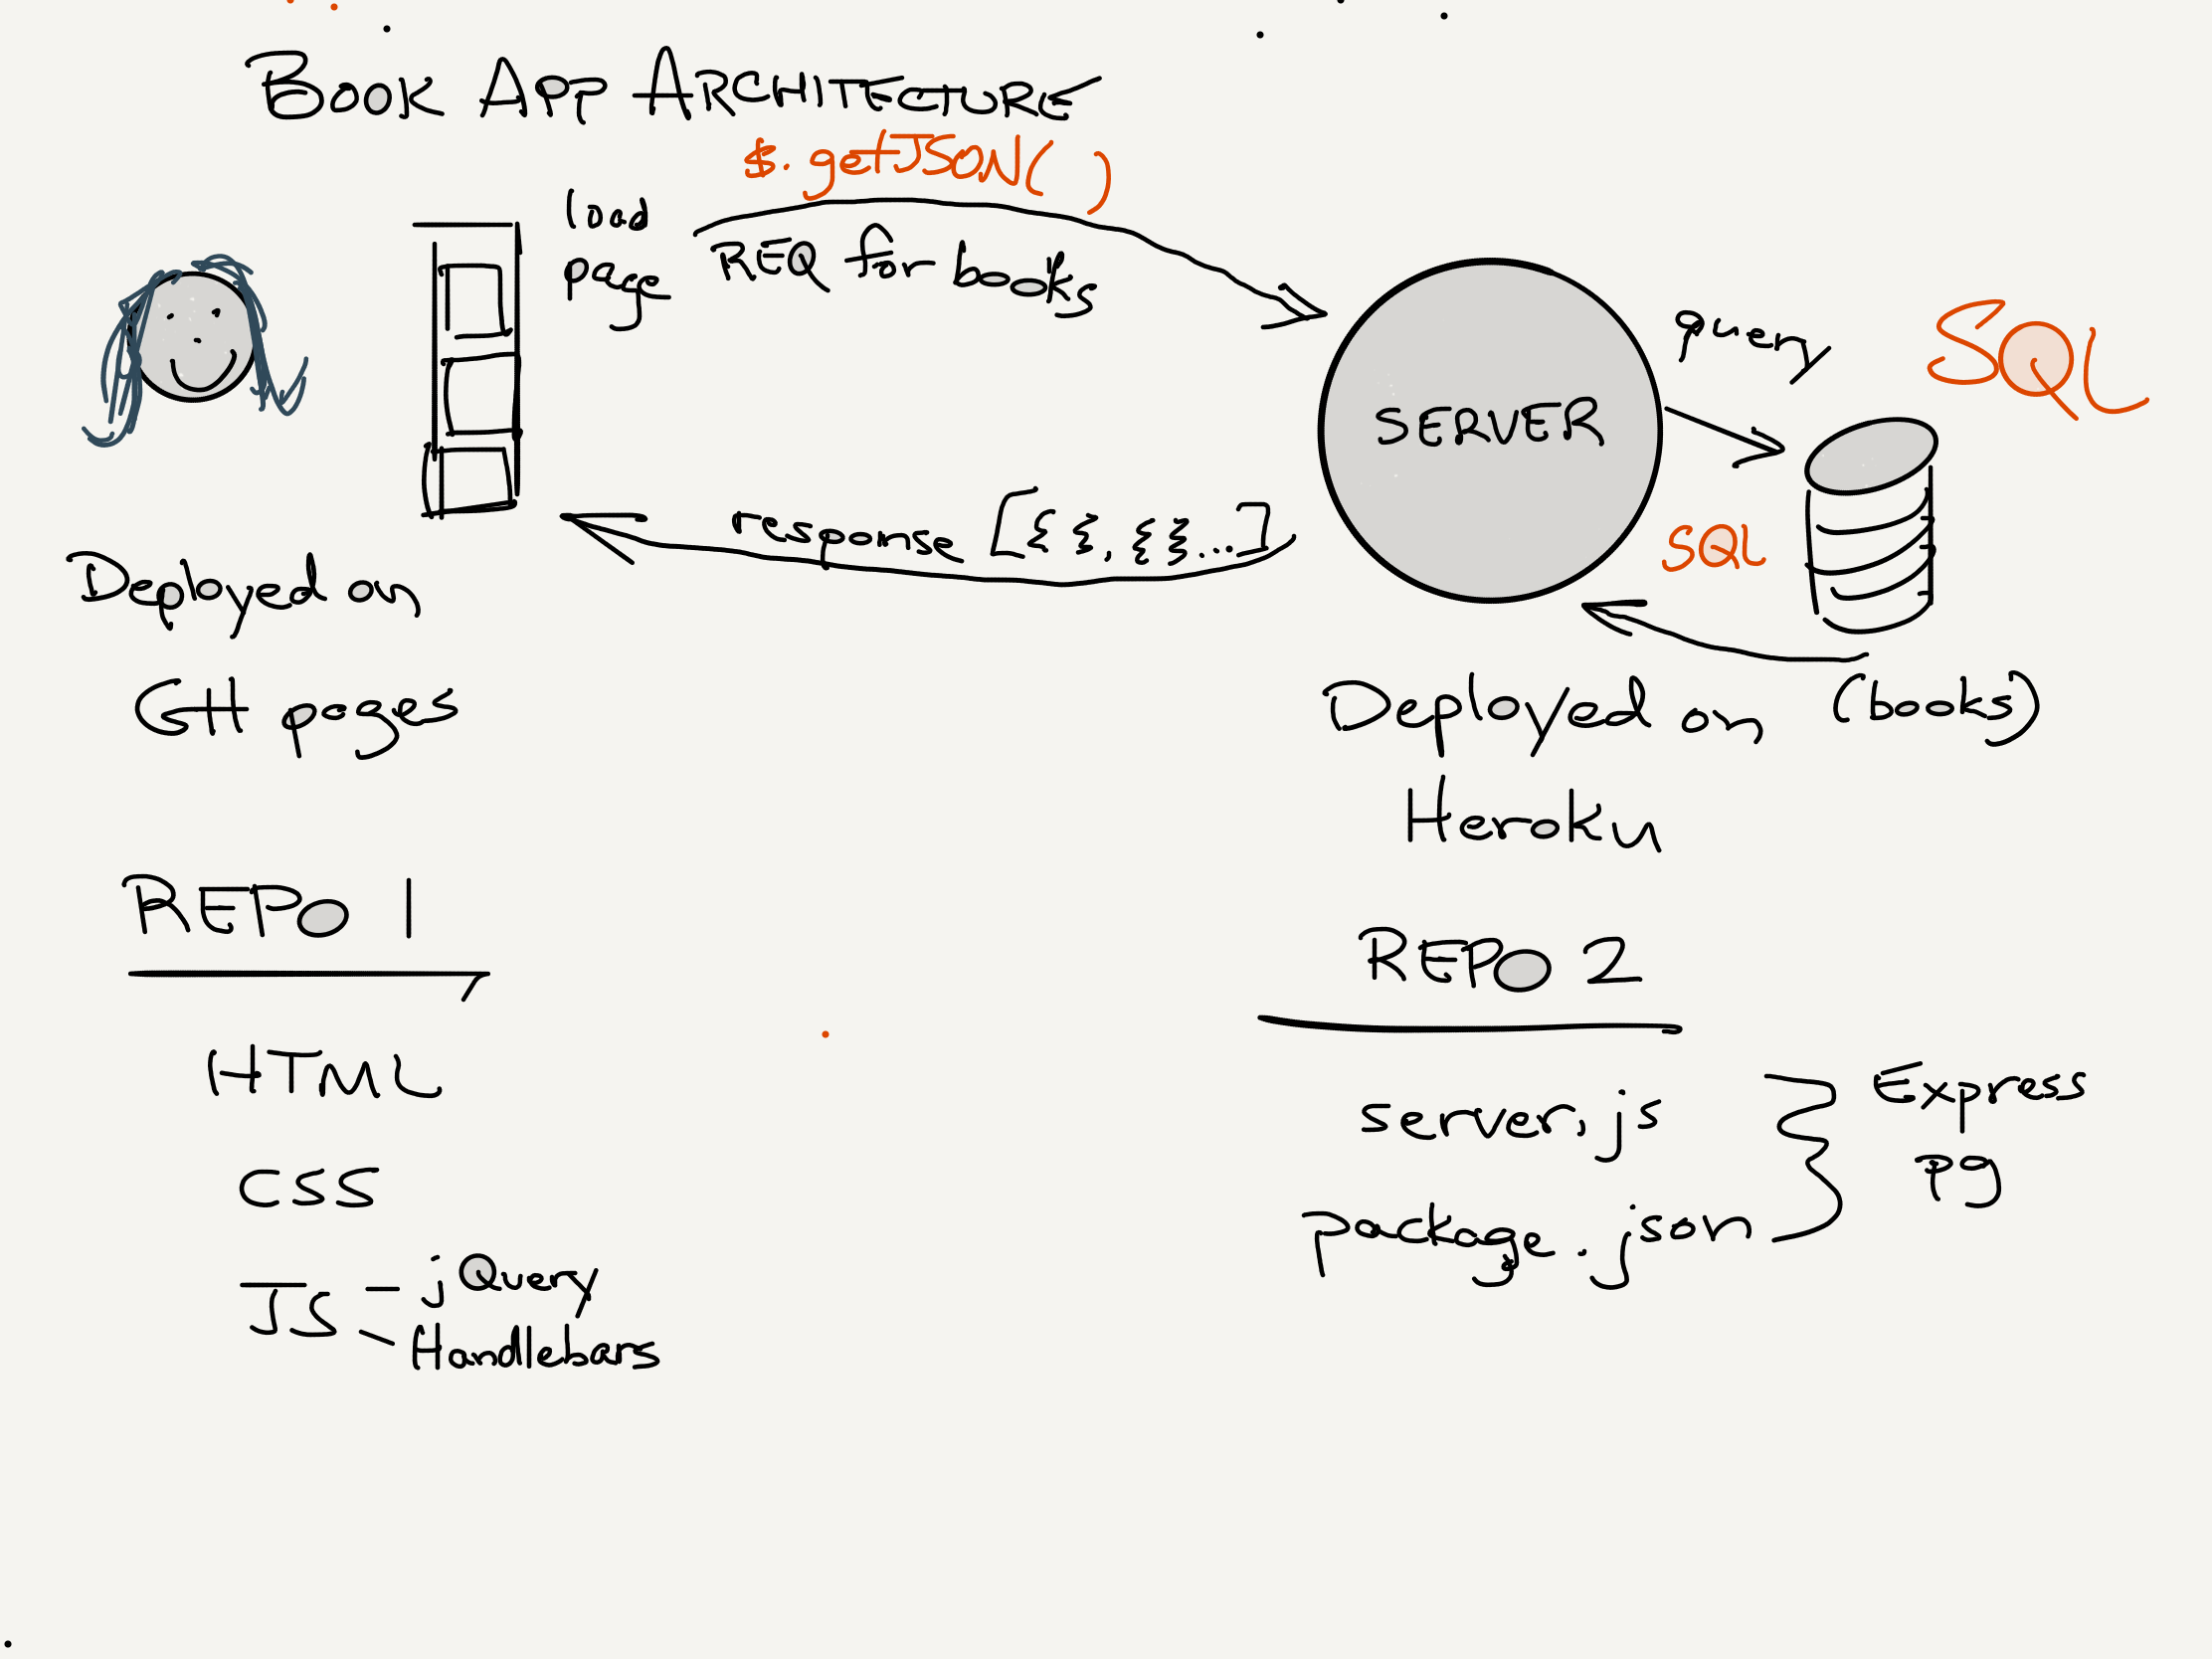 BOOK APP ARCHITECTURE
$.getJSON( )
load
page
REQ for books
query
SQL
SERVER
response [{ }, { }...]
SQL
Deployed on
GH pages
(books)
Deployed on
Heroku
REPO 1
HTML
CSS
JS - jQuery
- Handlebars
REPO 2
server.js
package.json
Express
pg